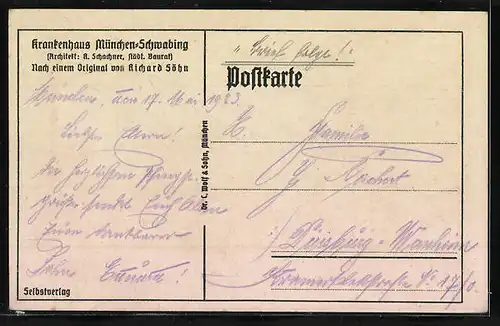 Krankenhaus München-Schwabing
(Architekt: R. Schachner, städt. Baurat)
Nach einem Original von Richard Söhn
München, den 17. Mai 1923.
Liebe Eltern!
Die herzlichsten
sendet Euch Allen
Euer dankbarer
Sohn
Selbstverlag
Dr. C. Wolf & Sohn, München
"Brief folgt!"
Postkarte
Familie
Duisburg-Wanheim
No 17/0.